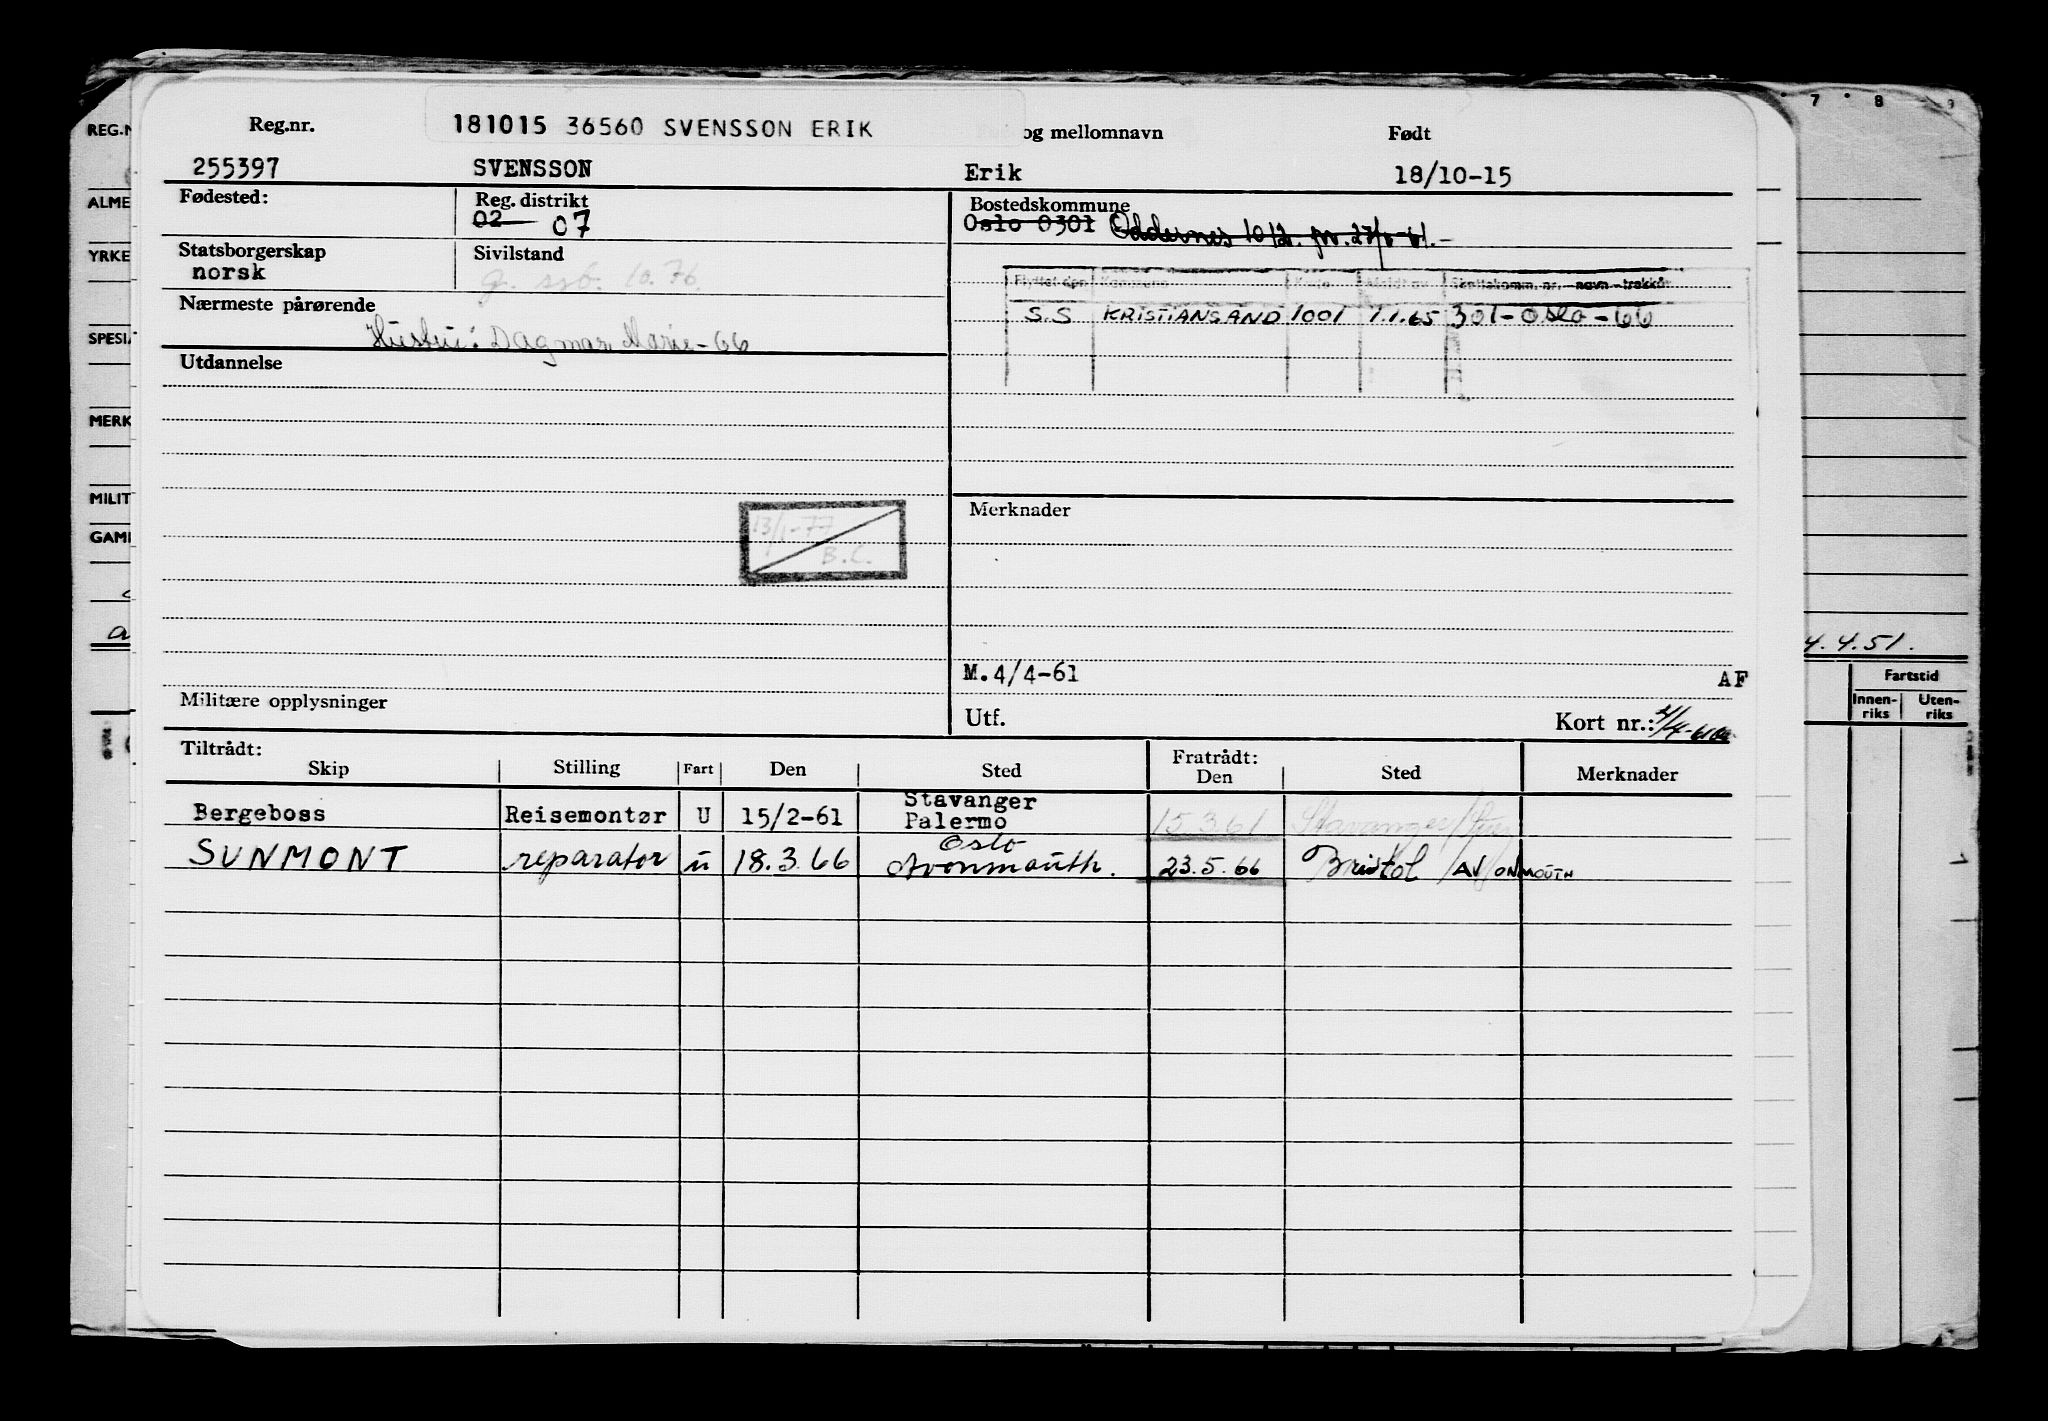 Reg.nr.
181015 36560 SVENSSON ERIK
og mellomnavn
Født
255397 SVENSSON Erik 18/10-15
Fødested:
Reg. distrikt
02 07
Bostedskommune
Oslo 0301 Oddernes 1012.
Statsborgerskap
norsk
Sivilstand
g. 10.76.
Nærmeste pårørende
Hustru: Dagmar Marie-66
S.S KRISTIANSAND 1001 1.1.65 301-Oslo-66
Utdannelse
13/1-77
B.C.
Merknader
Militære opplysninger
M.4/4-61 AF
Utf.
Kort nr.:
Tiltrådt:
Skip Stilling Fart Den Sted
Fratrådt:
Den Sted Merknader
Bergeboss Reisemontør U 15/2-61 Stavanger
Palermo 15.3.61 Stavanger
SUNMONT reparatør u 18.3.66 Oslo
Avonmouth. 23.5.66 Bristol / AVONMOUTH
REG.N
ALME
YRKE
SPESIA
MERK
MILIT
GAM
7 8 9
4.4.51.
Fartstid
Innen-
riks
Uten-
riks